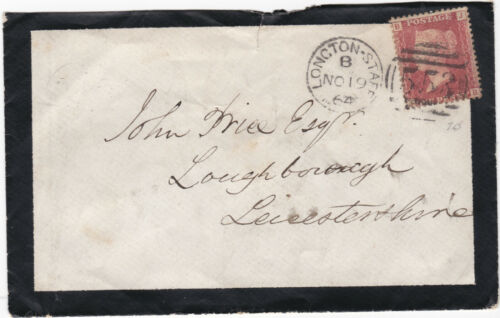 LONGTON-STAFF
B
NO 19
64
POSTAGE
John Price Esqr.
Loughborough
Leicestershire